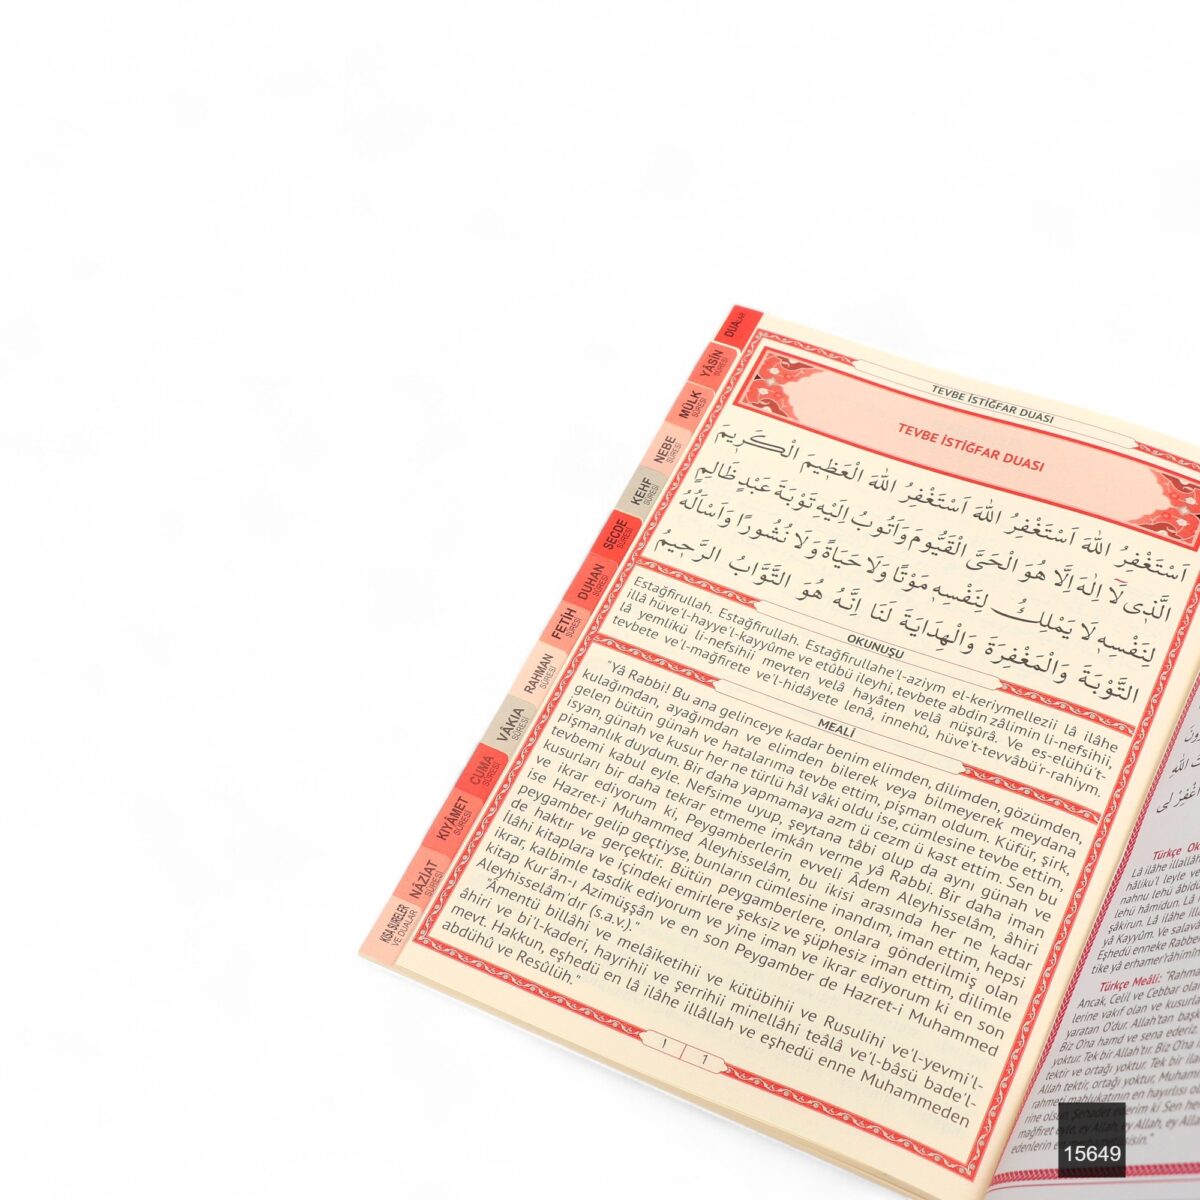 DUALAR
YÂSİN
SÛRESİ
MÜLK
SÛRESİ
NEBE
SÛRESİ
KEHF
SÛRESİ
SECDE
SÛRESİ
DUHAN
SÛRESİ
FETİH
SÛRESİ
RAHMAN
SÛRESİ
VÂKIA
SÛRESİ
CUMA
SÛRESİ
KIYÂMET
SÛRESİ
NÂZİAT
SÛRESİ
KISA SURELER
VE DUALAR
TEVBE İSTİĞFAR DUASI
TEVBE İSTİĞFAR DUASI
اَسْتَغْفِرُ اللّٰهَ اَسْتَغْفِرُ اللّٰهَ اَسْتَغْفِرُ اللّٰهَ الْعَظ۪يمَ الْكَر۪يمَ
الَّذ۪ى لَٓا اِلٰهَ اِلَّا هُوَ الْحَىَّ الْقَيُّومَ وَاَتُوبُ اِلَيْهِ تَوْبَةَ عَبْدٍ ظَالِمٍ
لِنَفْسِه۪ لَا يَمْلِكُ لِنَفْسِه۪ مَوْتًا وَلَا حَيَاةً وَلَا نُشُورًا وَاَسْاَلُهُ
التَّوْبَةَ وَالْمَغْفِرَةَ وَالْهِدَايَةَ لَنَا اِنَّهُ هُوَ التَّوَّابُ الرَّح۪يمُ
OKUNUŞU
Estağfirullah. Estağfirullah. Estağfirullahe'l-aziym el-keriymellezii lâ ilâhe
illâ hüve'l-hayye'l-kayyûme ve etûbü ileyhi, tevbete abdin zâlimin li-nefsihii,
lâ yemlikü li-nefsihii mevten velâ hayâten velâ nüşûrâ. Ve es-elühü't-
tevbete ve'l-mağfirete ve'l-hidâyete lenâ, innehû, hüve't-tevvâbü'r-rahiym.
MEALİ
"Yâ Rabbi! Bu ana gelinceye kadar benim elimden, dilimden, gözümden,
kulağımdan, ayağımdan ve elimden bilerek veya bilmeyerek meydana
gelen bütün günah ve hatalarıma tevbe ettim, pişman oldum. Küfür, şirk,
isyan, günah ve kusur her ne türlü hâl vâki oldu ise, cümlesine tevbe ettim,
pişmanlık duydum. Bir daha yapmamaya azm ü cezm ü kast ettim. Sen bu
tevbemi kabul eyle. Nefsime uyup, şeytana tâbi olup da aynı günah ve
kusurları bir daha tekrar etmeme imkân verme yâ Rabbi. Bir daha iman
ve ikrar ediyorum ki, Peygamberlerin evveli Âdem Aleyhisselâm, âhiri
ise Hazret-i Muhammed Aleyhisselâm, bu ikisi arasında her ne kadar
peygamber gelip geçtiyse, bunların cümlesine inandım, iman ettim, hepsi
de haktır ve gerçektir. Bütün peygamberlere, onlara gönderilmiş olan
İlâhi kitaplara ve içindeki emirlere şeksiz ve şüphesiz iman ettim, dilimle
ikrar, kalbimle tasdik ediyorum ve yine iman ve ikrar ediyorum ki en son
kitap Kur'ân-ı Azimüşşân ve en son Peygamber de Hazret-i Muhammed
Aleyhisselâm'dır (s.a.v.)."
"Âmentü billâhi ve melâiketihii ve kütübihii ve Rusulihi ve'l-yevmi'l-
âhiri ve bi'l-kaderi, hayrihii ve şerrihii minellâhi teâlâ ve'l-bâsü bade'l-
mevt. Hakkun, eşhedü en lâ ilâhe illâllah ve eşhedü enne Muhammeden
abdühû ve Resûlüh."
1 1
Türkçe
Lâ ilâhe illallâh
hâliku'l leyle ve
nahnu lehû âbidû
lehû hâmidun. Lâ
şâkirun. Lâ ilâhe
yâ Kayyûm. Ve
Eşhedü enneke
tike yâ
Türkçe Meâli: "Rahmâ
Ancak, Celil ve Cebbar olan
lerine vakıf olan ve kusurla
yaratan O'dur. Allah'tan baş
Biz O'na hamd ve sena ederiz
yoktur. Tek bir Allah'tır. Biz O'na
tektir ve ortağı yoktur. Tek bir ilâ
Allah tektir, ortağı yoktur, Muham
rahmeti mahlukatının en hayırlısı ol
15649